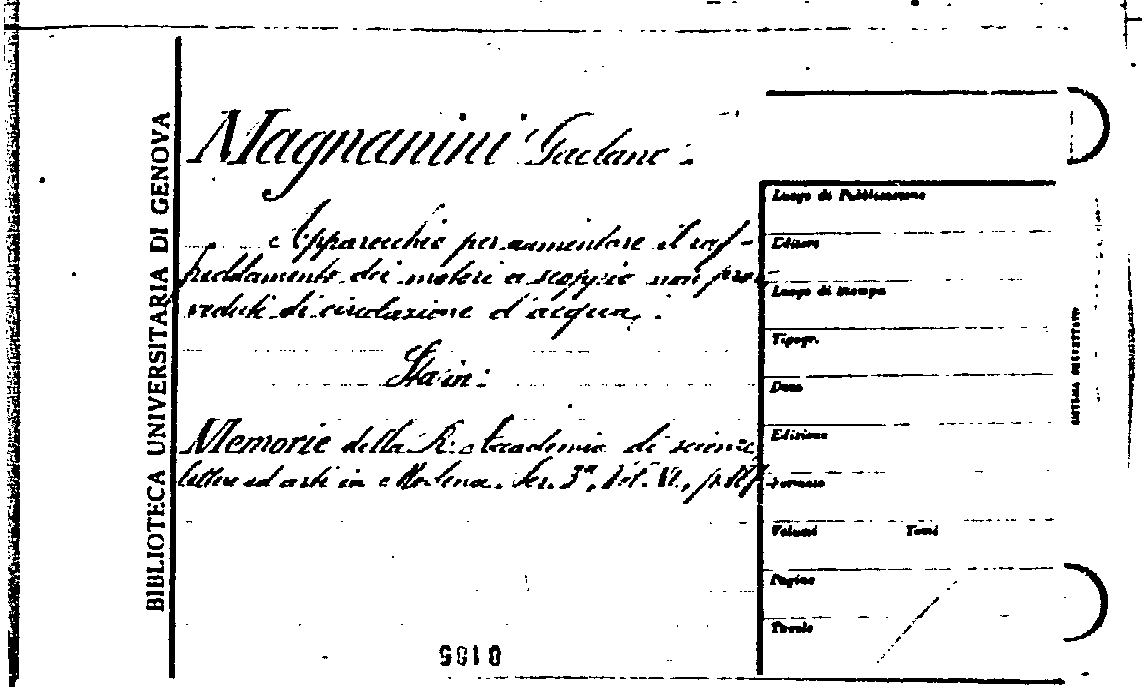 BIBLIOTECA UNIVERSITARIA DI GENOVA
Magnanini Gaetano.
Apparecchio per aumentare il raf-
freddamento dei motori a scoppio non prov-
veduti di circolazione d'acqua.
Sta in:
Memorie della R. Accademia di scienze,
lettere ed arti in Modena. Ser. 3ª, Vol. VI., p.
Luogo di Pubblicazione
Editore
Luogo di stampa
Tipogr.
Data
Edizione
Formato
Volumi Tomi
Pagine
Tavole